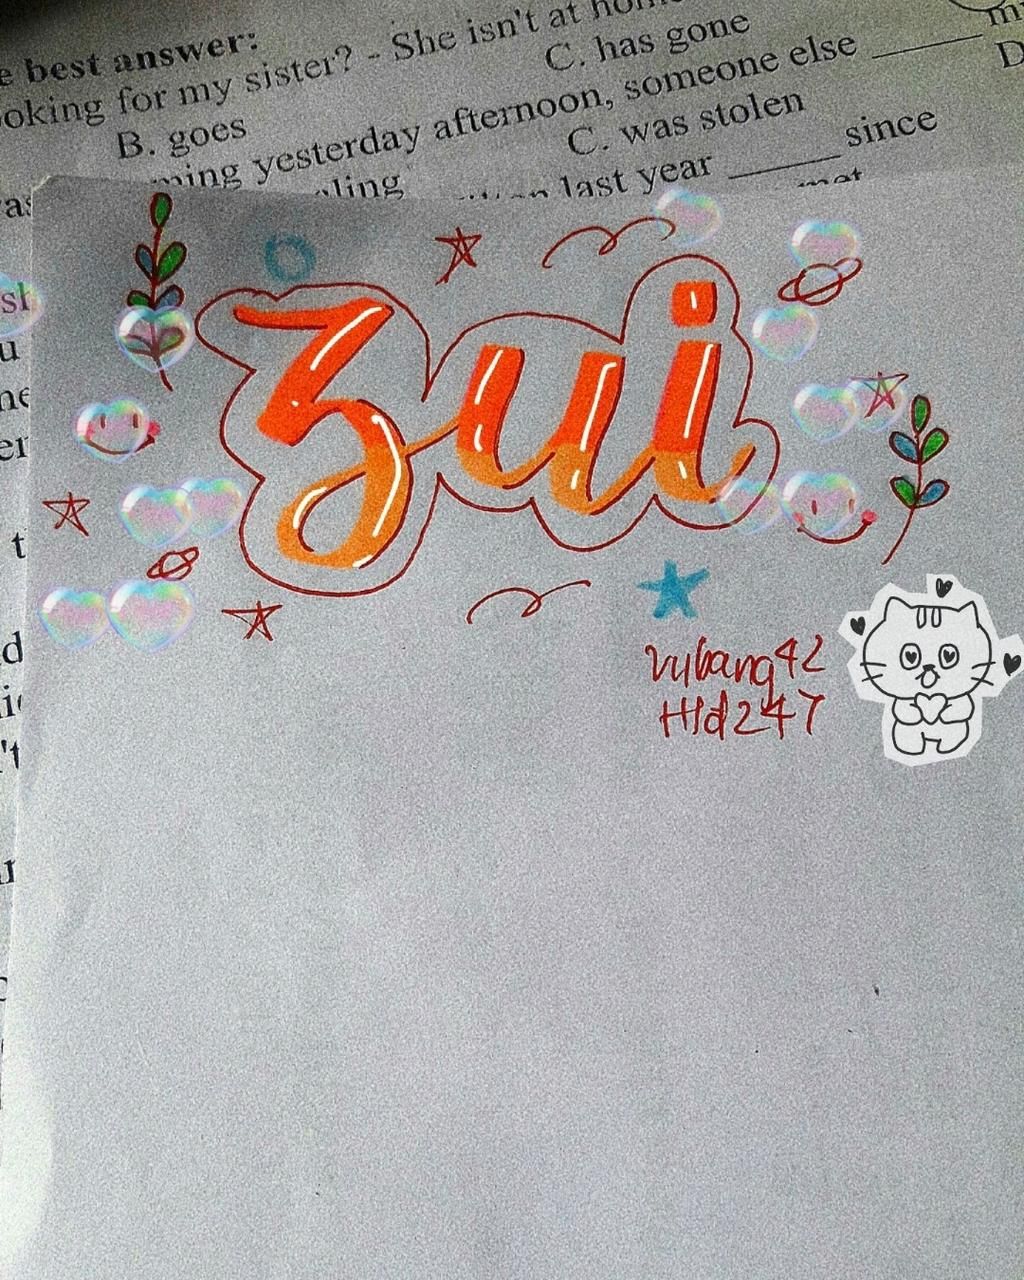 best answer:
for my sister? - She isn't at
B. goes
C. has gone
yesterday afternoon, someone else ______
C. was stolen
last year ______ since
zui
vybang42
Hld247